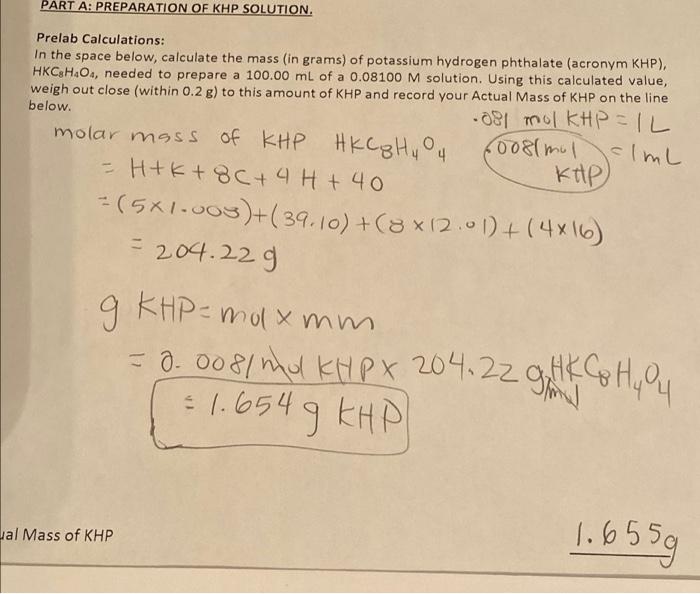 PART A: PREPARATION OF KHP SOLUTION.
Prelab Calculations:
In the space below, calculate the mass (in grams) of potassium hydrogen phthalate (acronym KHP),
HKC₈H₄O₄, needed to prepare a 100.00 mL of a 0.08100 M solution. Using this calculated value,
weigh out close (within 0.2 g) to this amount of KHP and record your Actual Mass of KHP on the line
below.
.081 mol KHP = 1 L
molar mass of KHP HKC₈H₄O₄
.0081 mol KHP = 1 mL
= H + K + 8C + 4H + 4O
= (5 × 1.008) + (39.10) + (8 × 12.01) + (4 × 16)
= 204.22 g
g KHP = mol × mm
= 0.0081 mol KHP × 204.22 g/mol HKC₈H₄O₄
= 1.654 g KHP
ual Mass of KHP 1.655g